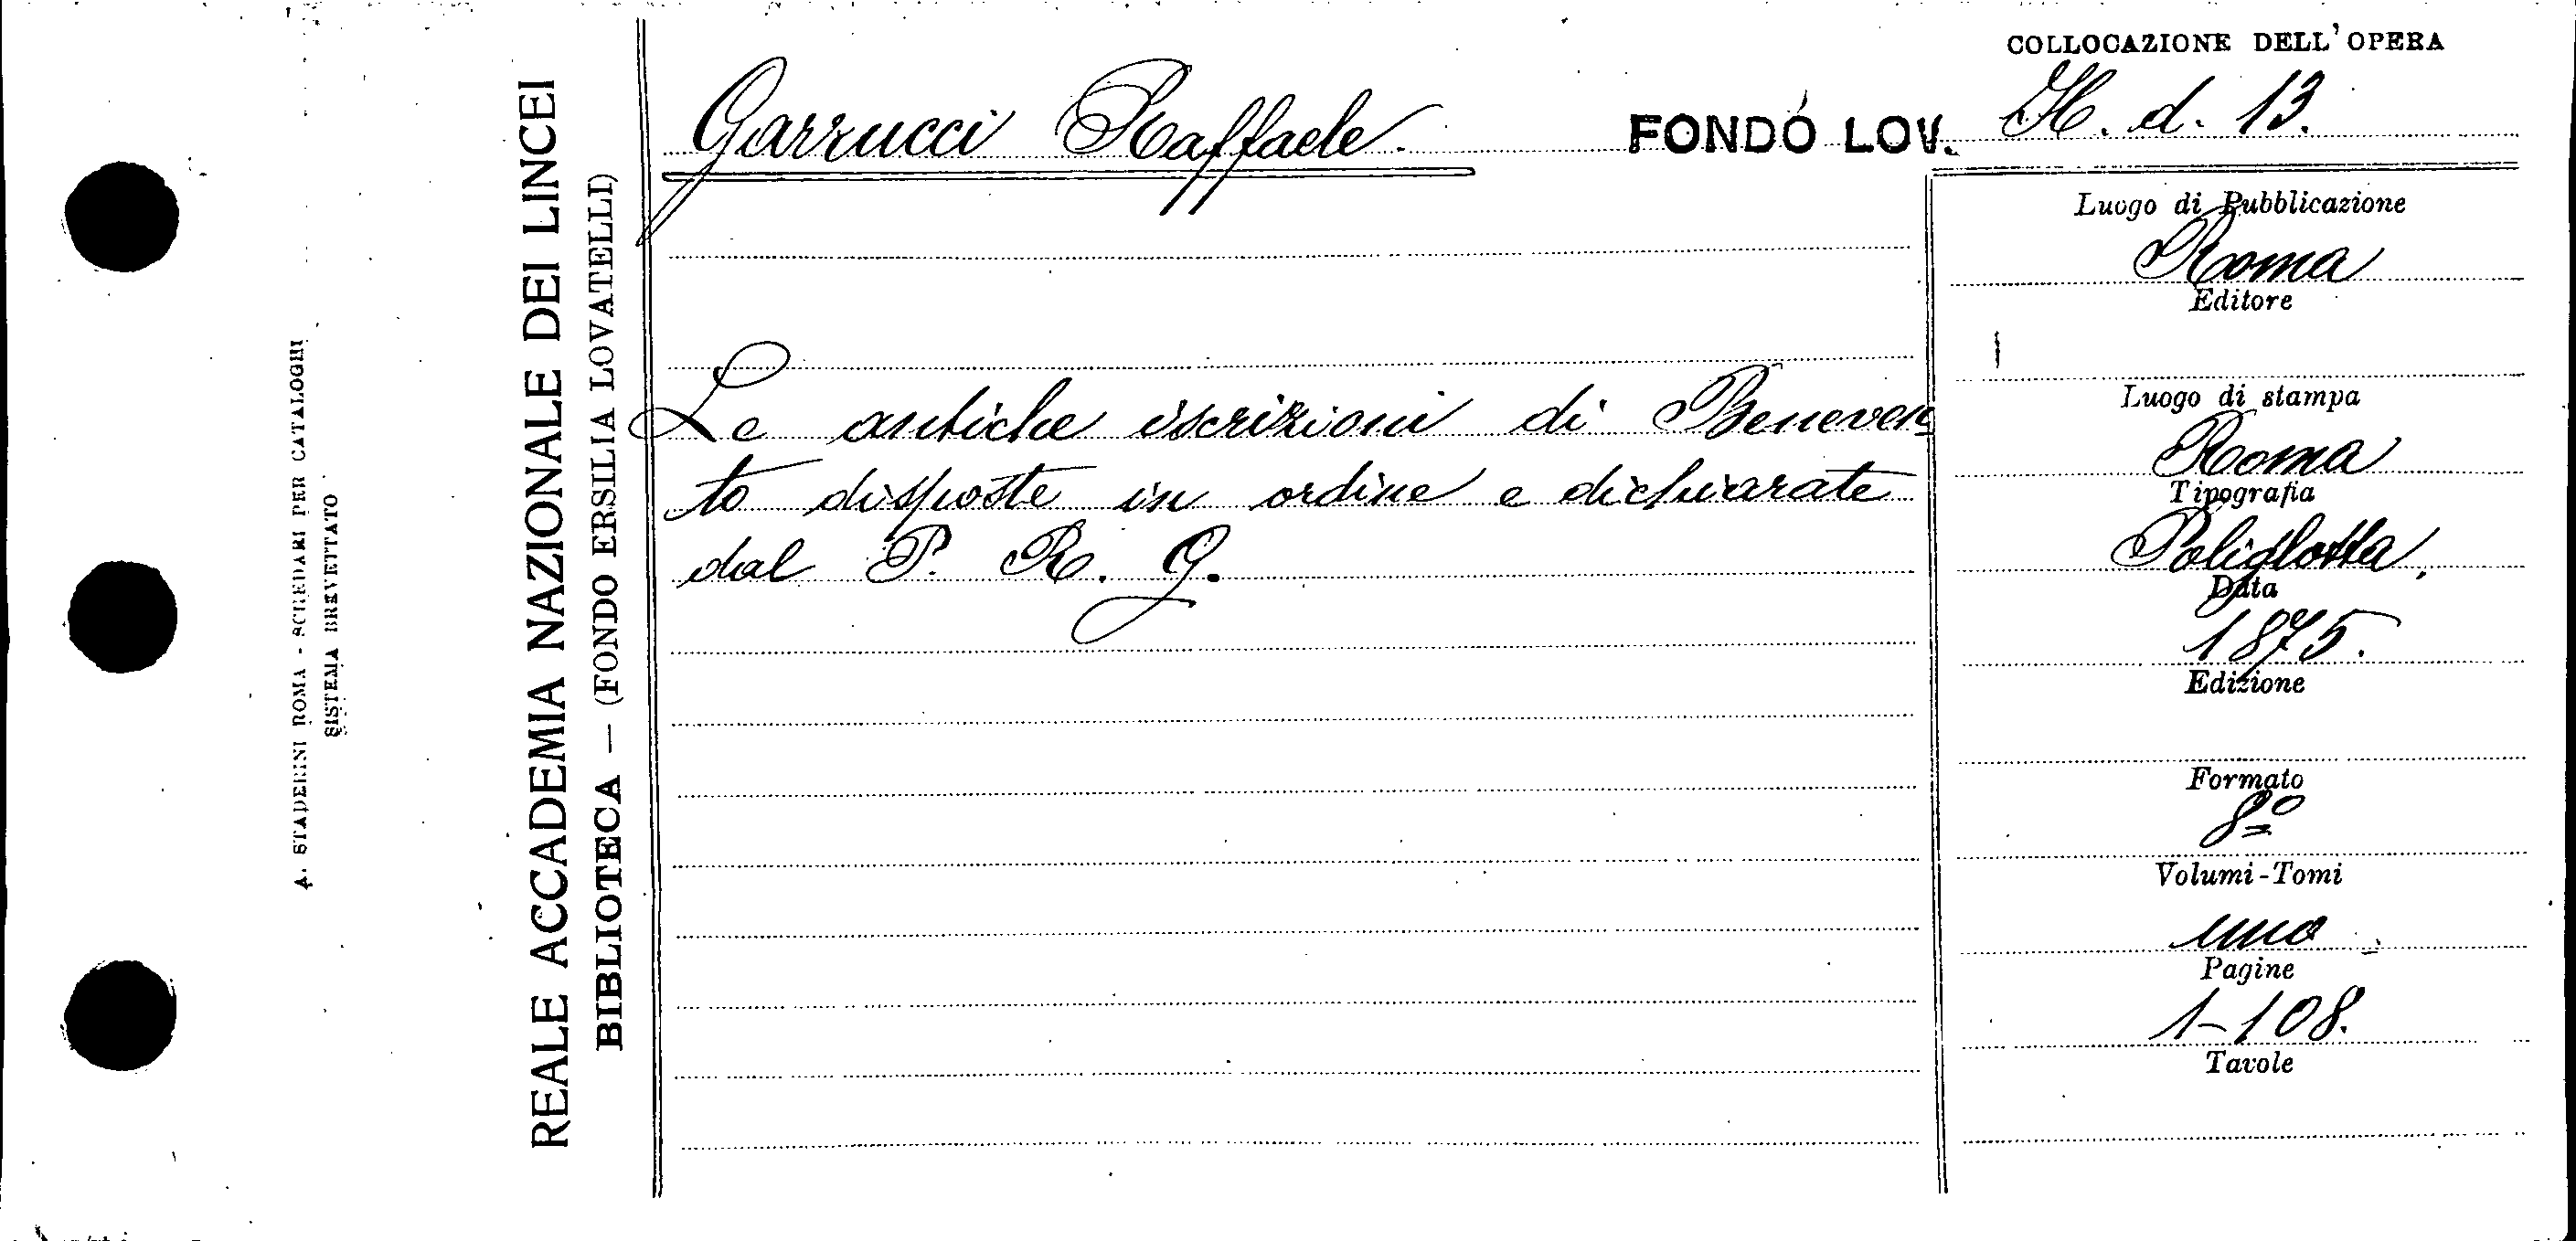 COLLOCAZIONE DELL'OPERA
Garrucci Raffaele.
FONDO LOV. H. d. 13.
Le antiche iscrizioni di Beneven
to disposte in ordine e dichiarate
dal P. R. G.
Luogo di Pubblicazione
Roma
Editore
Luogo di stampa
Roma
Tipografia
Poliglotta.
Data
1875.
Edizione
Formato
8º
Volumi-Tomi
uno
Pagine
1-108.
Tavole
REALE ACCADEMIA NAZIONALE DEI LINCEI
BIBLIOTECA — (FONDO ERSILIA LOVATELLI)
A. STADERINI ROMA - SCHEDARI PER CATALOGHI
SISTEMA BREVETTATO